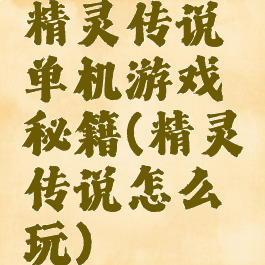 精灵传说
单机游戏
秘籍(精灵
传说怎么
玩)